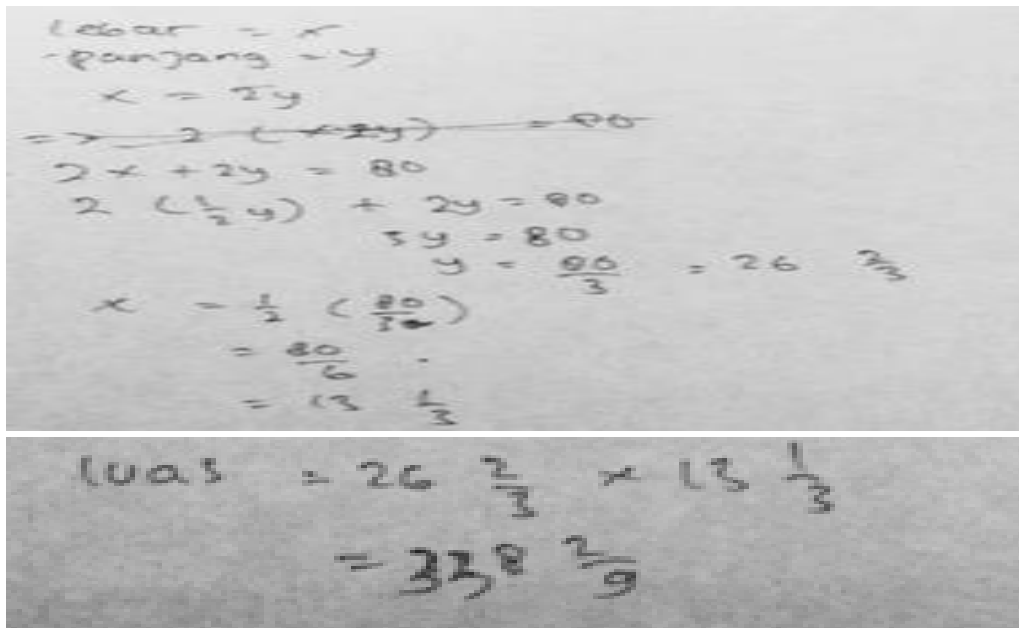 lebar = x
-panjang = y
x = 2y
=> 2 (x 2y) = 80
2x + 2y = 80
2 (1/2 y) + 2y = 80
3y = 80
y = 80/3 = 26 2/3
x = 1/2 (80/3)
= 80/6
= 13 1/3
luas = 26 2/3 x 13 1/3
= 338 2/9